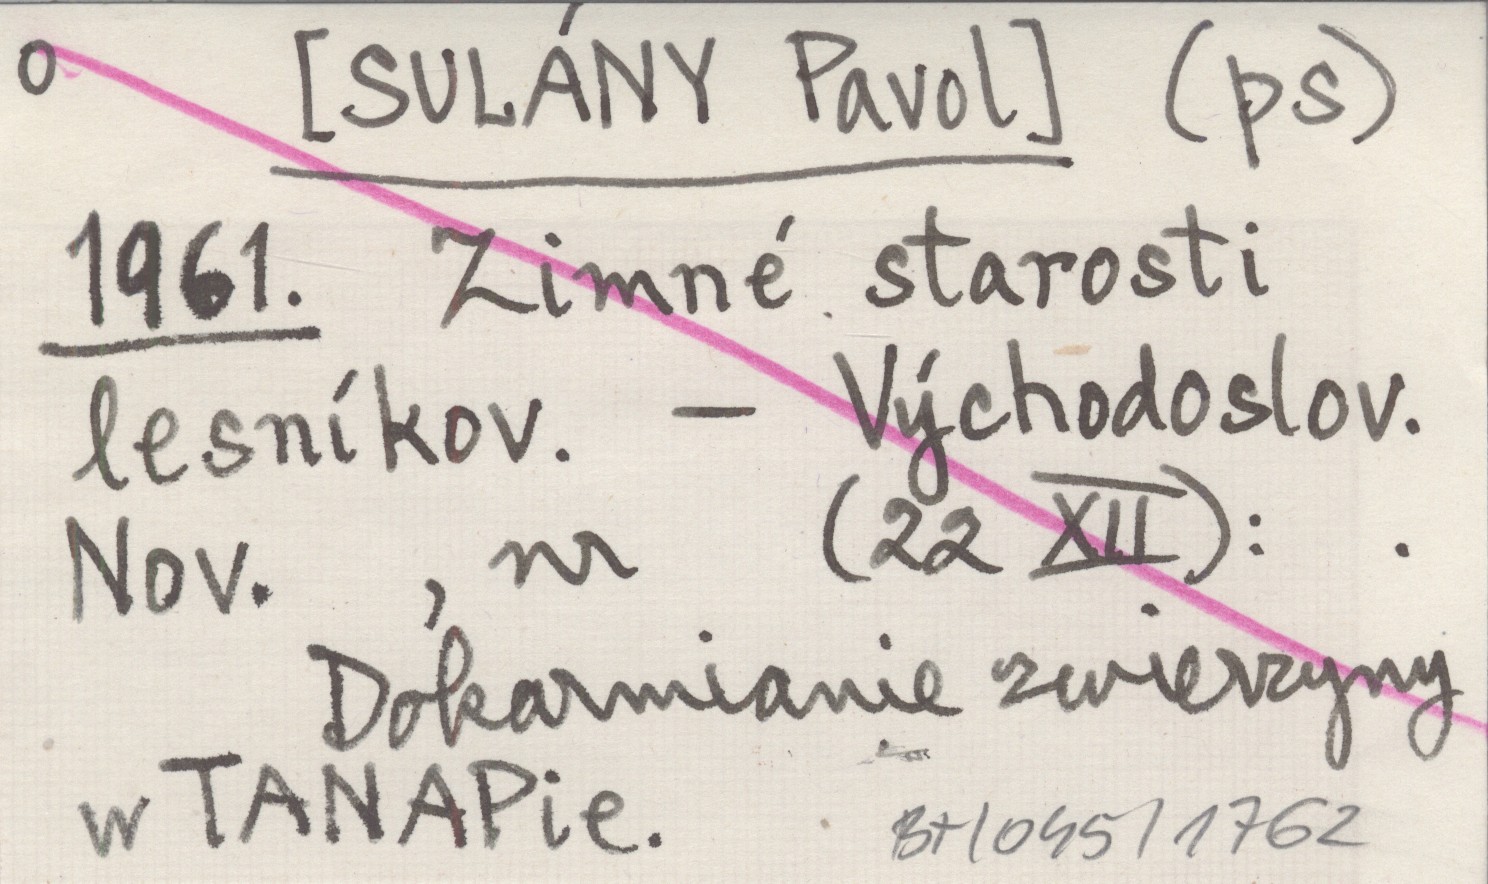 o [SULÁNY Pavol] (ps)
1961. Zimné starosti
lesníkov. — Východoslov.
Nov. , nr (22 XII): .
Dokarmianie zwierzyny
w TANAPie.
BT/045/1762